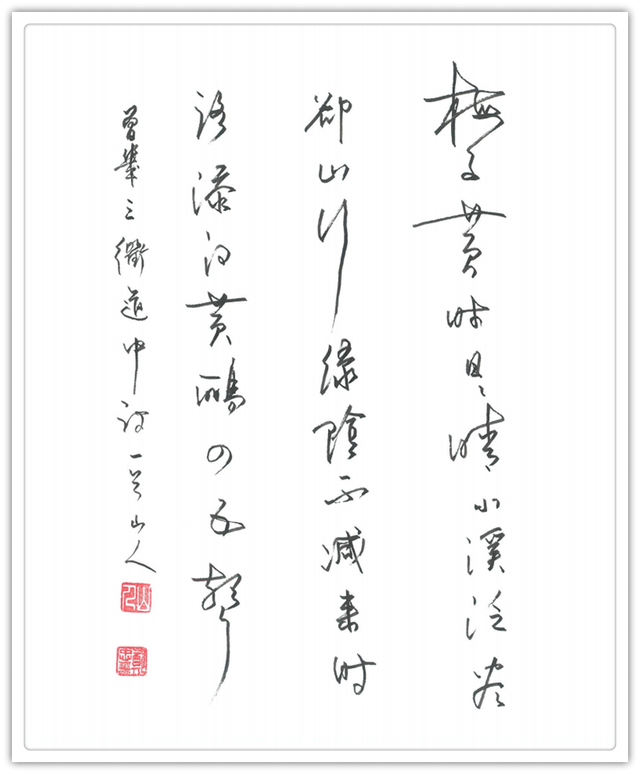 梅子黄时日日晴小溪泛尽
卻山行绿陰不减来时
路添得黄鹂四五聲
曾幾三衢道中诗一山人